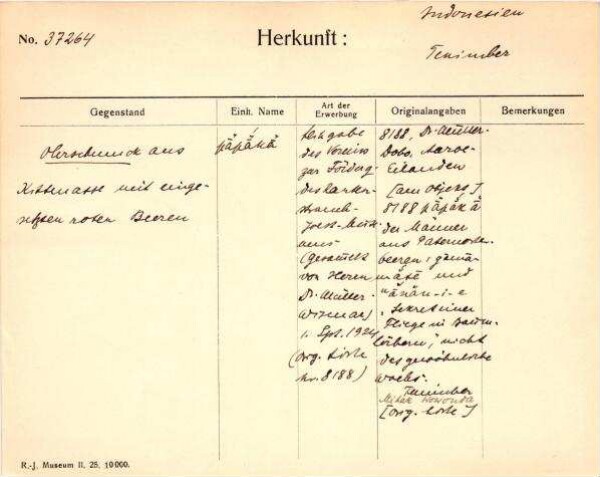 Indonesien
No. 37264 Herkunft:
Tenimber
Gegenstand
Einh. Name
Art der Erwerbung
Originalangaben
Bemerkungen
Ohrschmuck aus
Kittmasse mit einge-
setzten roten Beeren
pāpākā
Leihgabe
des Vereins
zur Förderg
des Rauten-
strauch-
Joest-Mus-
eums
(gesammelt
von Herrn
Dr. Müller-
Wismar)
1. Spt. 1924
(Org. Liste
Nr. 8188)
8188, Dr. Müller.
Dobo, Aaroe-
Eilanden
[am Objekt]
8188 pāpākā
der Männer
aus Paternoster-
beeren:
und
Sekret einer
Fliege in
nicht
des gewöhnliche
Wachs.
Tenimber
[Org. Liste]
R.-J. Museum II. 25. 10000.